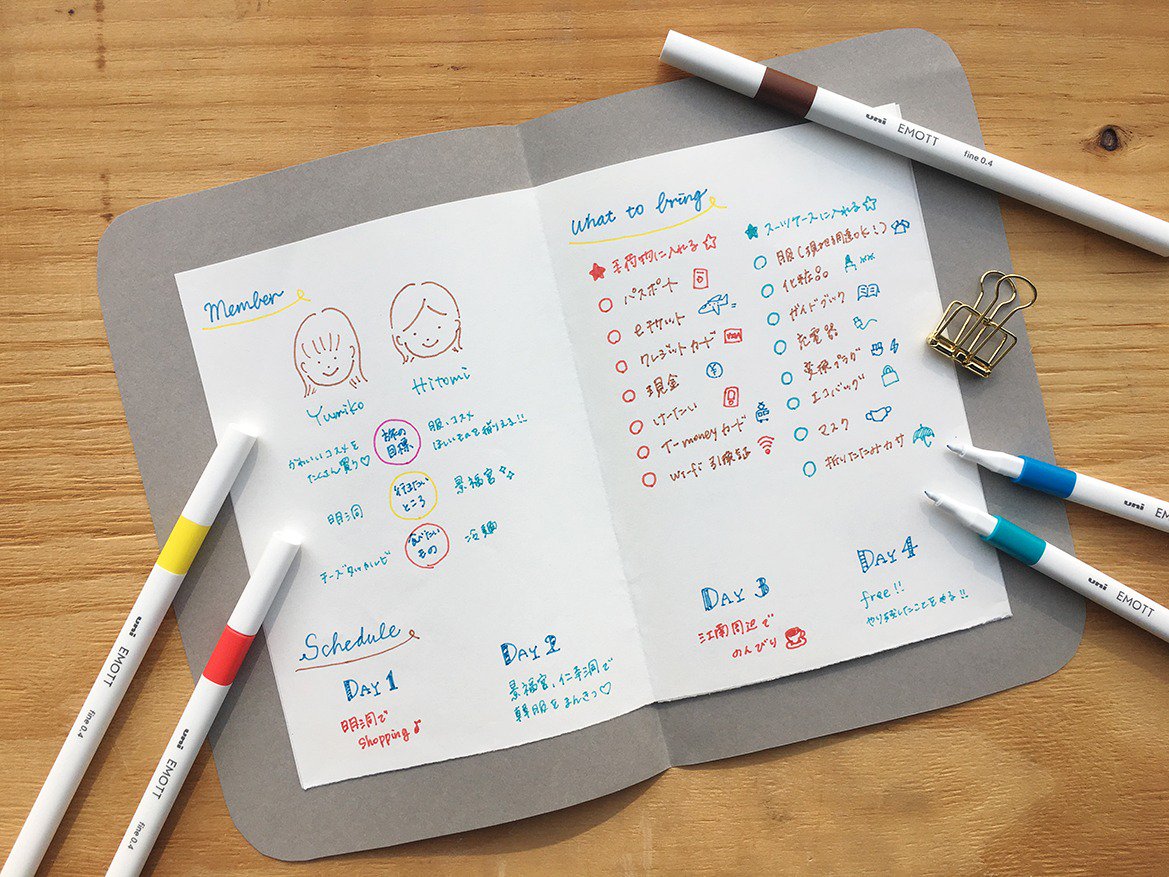 Member
Yumiko
Hitomi
かわいいコスメを
たくさん買う♡
旅の
目標
服、コスメ
ほしいものを揃える!!
明洞
行きたい
ところ
景福宮
チーズタッカルビ
食べたい
もの
冷麺
Schedule
DAY 1
明洞で
Shopping♪
DAY 2
景福宮、仁寺洞で
韓服をまんきつ♡
What to bring
★手荷物に入れる☆
パスポート
eチケット
クレジットカード
現金
¥
けーたい
T-moneyカード
Wi-fi 引換証
★スーツケースに入れる☆
服(現地調達OK!)
化粧品
ガイドブック
充電器
変換プラグ
エコバッグ
マスク
折りたたみカサ
DAY 3
江南周辺で
のんびり
DAY 4
free!!
やり残したことをやる!!
uni EMOTT fine 0.4
uni EMOTT fine 0.4
uni EMOTT fine 0.4
uni EMOTT
uni EMOTT